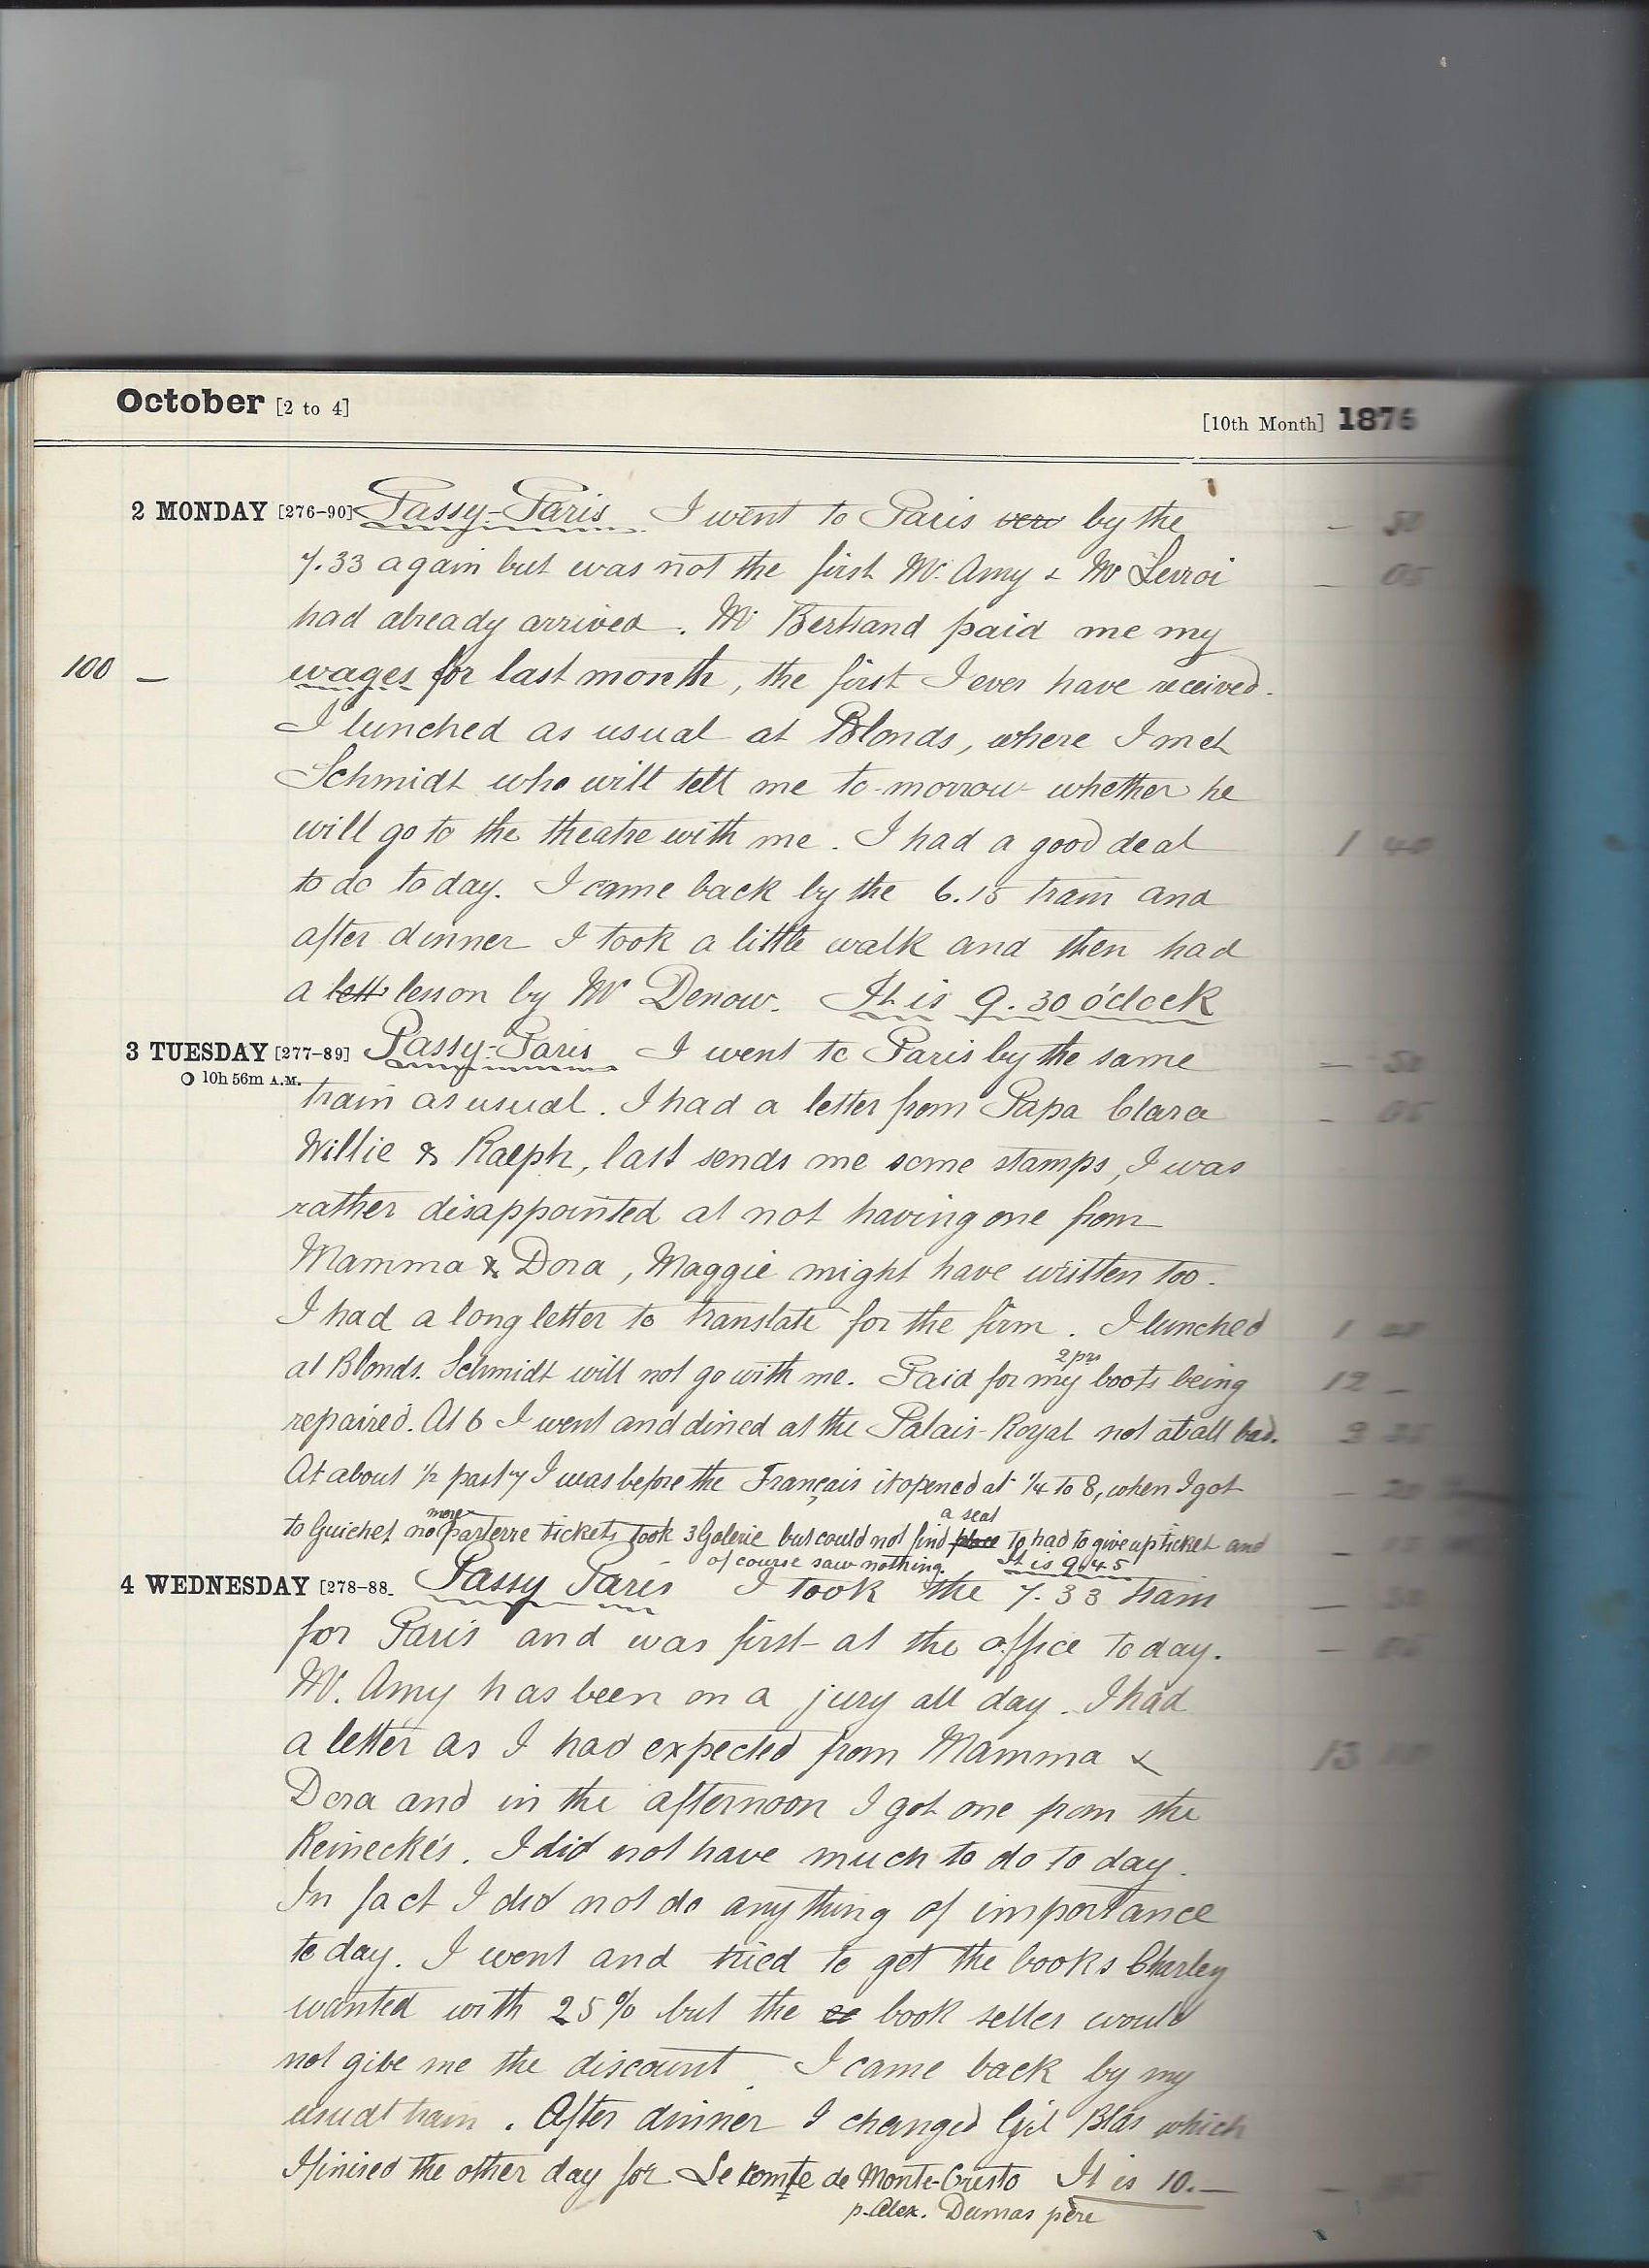 October [2 to 4] [10th Month] 1876
2 MONDAY [276-90] Passy-Paris I went to Paris by the — 50
7.33 again but was not the first Mr. Amy & Mr Leroi — 05
had already arrived. Mr Bertrand paid me my
100 — wages for last month, the first I ever have received.
I lunched as usual at Blonds, where I met
Schmidt who will tell me to-morrow whether he
will go to the theatre with me. I had a good deal 1 40
to do to day. I came back by the 6.15 train and
after dinner I took a little walk and then had
a lett lesson by Mr Denow. It is 9.30 o'clock
3 TUESDAY [277-89] Passy-Paris I went to Paris by the same — 50
O 10h 56m A.M.
train as usual. I had a letter from Papa Clara — 05
Willie & Ralph, last sends me some stamps, I was
rather disappointed at not having one from
Mamma & Dora, Maggie might have written too.
I had a long letter to translate for the firm. I lunched 1
2 prs
at Blonds. Schmidt will not go with me. Paid for my boots being 12 —
repaired. At 6 I went and dined at the Palais-Royal not at all bad.
At about 1/2 past 7 I was before the Français it opened at 1/4 to 8, when I got — 20
more a seat
to Guichet no parterre tickets took 3 Galerie but could not find place to had to give up ticket and
of course saw nothing. It is 9.45
4 WEDNESDAY [278-88 Passy Paris I took the 7.33 train — 50
for Paris and was first at the office to day. — 05
Mr. Amy has been on a jury all day. I had
a letter as I had expected from Mamma & 13
Dora and in the afternoon I got one from the
Reinecké's. I did not have much to do to day.
In fact I did not do anything of importance
to day. I went and tried to get the books Charley
wanted with 25% but the book seller would
not give me the discount. I came back by my
usual train. After dinner I changed Gil Blas which
I finised the other day for Le Comte de Monte-Cristo It is 10.—
p. Alex. Dumas père